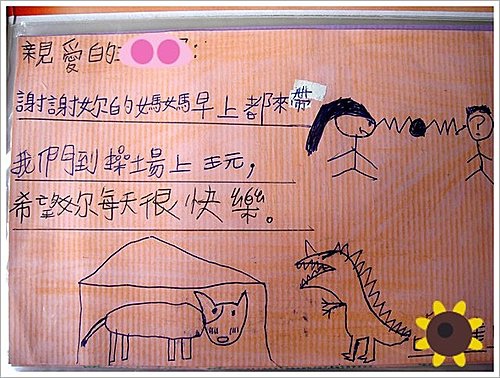 親愛的
謝謝妳的媽媽早上都來帶
我們到操場上玩，
希望妳每天很快樂。
?